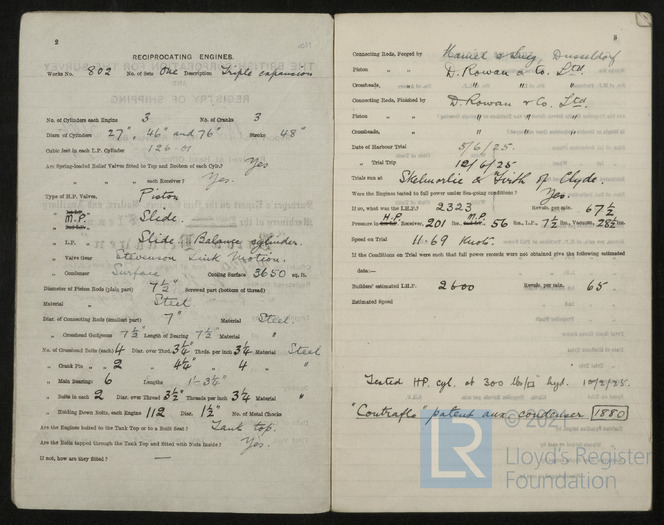 2
RECIPROCATING ENGINES.
Works No. 802 No. of Sets One Description Triple expansion
No. of Cylinders each Engine 3 No. of Cranks 3
Diars of Cylinders 27", 46" and 76" Stroke 48"
Cubic feet in each L.P. Cylinder 126.01
Are Spring-loaded Relief Valves fitted to Top and Bottom of each Cylr.? Yes
„ „ each Receiver? Yes.
Type of H.P. Valves, Piston
„ M.P. „ Slide.
„ L.P. „ Slide. Balance cylinder.
„ Valve Gear Stevenson Link Motion.
„ Condenser Surface Cooling Surface 3650 sq. ft.
Diameter of Piston Rods (plain part) 7½" Screwed part (bottom of thread)
Material Steel
Diar. of Connecting Rods (smallest part) 7" Material Steel.
„ Crosshead Gudgeons 7½" Length of Bearing 7½" Material „
No. of Crosshead Bolts (each) 4 Diar. over Thrd. 3¼" Thrds. per inch 3¼ Material Steel
„ Crank Pin „ „ 2 „ 4¼" „ 4 „ „
„ Main Bearings 6 Lengths 1'-3¾"
„ Bolts in each 2 Diar. over Thread 3½" Threads per inch 3¼ Material „
„ Holding Down Bolts, each Engine 112 Diar. 1½" No. of Metal Chocks
Are the Engines bolted to the Tank Top or to a Built Seat? Tank top.
Are the Bolts tapped through the Tank Top and fitted with Nuts Inside? Yes.
If not, how are they fitted? —
3
Connecting Rods, Forged by Dusseldorf
Piston „ „ D. Rowan & Co. Ltd.
Crossheads, „ „ „ „
Connecting Rods, Finished by D. Rowan & Co. Ltd.
Piston „ „ „ „ „
Crossheads, „ „ „ „
Date of Harbour Trial 5/6/25.
„ Trial Trip 12/6/25.
Trials run at Skelmorlie & Firth of Clyde.
Were the Engines tested to full power under Sea-going conditions? Yes.
If so, what was the I.H.P.? 2323 Revols. per min. 67½
Pressure in H.P. Receiver, 201 lbs., M.P. 56 lbs., L.P. 7½ lbs., Vacuum, 28½ ins.
Speed on Trial 11.69 Knots.
If the Conditions on Trial were such that full power records were not obtained give the following estimated
data:—
Builders' estimated I.H.P. 2600 Revols. per min. 65
Estimated Speed
Tested H.P. cyl. at 300 lb/□" hyd. 12/2/25.
"Contraflo" patent aux. condenser 1880
© 202
LR
Lloyd's Register
Foundation